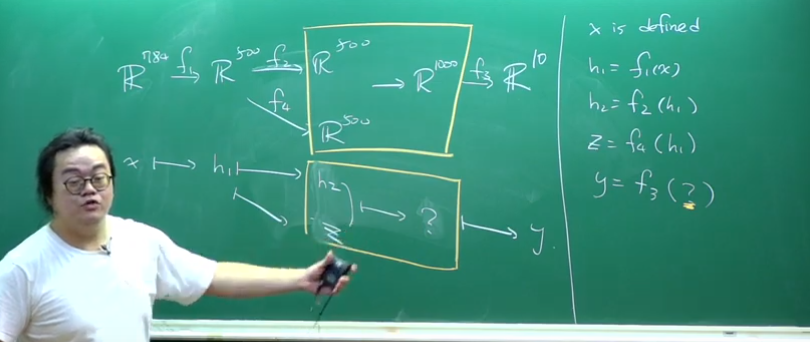 ℝ⁷⁸⁴ —f₁→ ℝ⁵⁰⁰ —f₂→ ℝ⁵⁰⁰ → ℝ¹⁰⁰⁰ —f₃→ ℝ¹⁰
f₄ ℝ⁵⁰⁰
x ↦ h₁ ↦ h₂ ↦ ? ↦ y.
z
x is defined
h₁ = f₁(x)
h₂ = f₂(h₁)
z = f₄(h₁)
y = f₃(?)